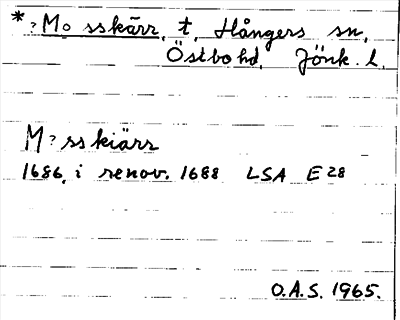 *?Mosskärr, t, Hångers sn,
Östbo hd, Jönk. l.
M?sskiärr
1686, i renov. 1688 LSA E 28
O.A.S. 1965.